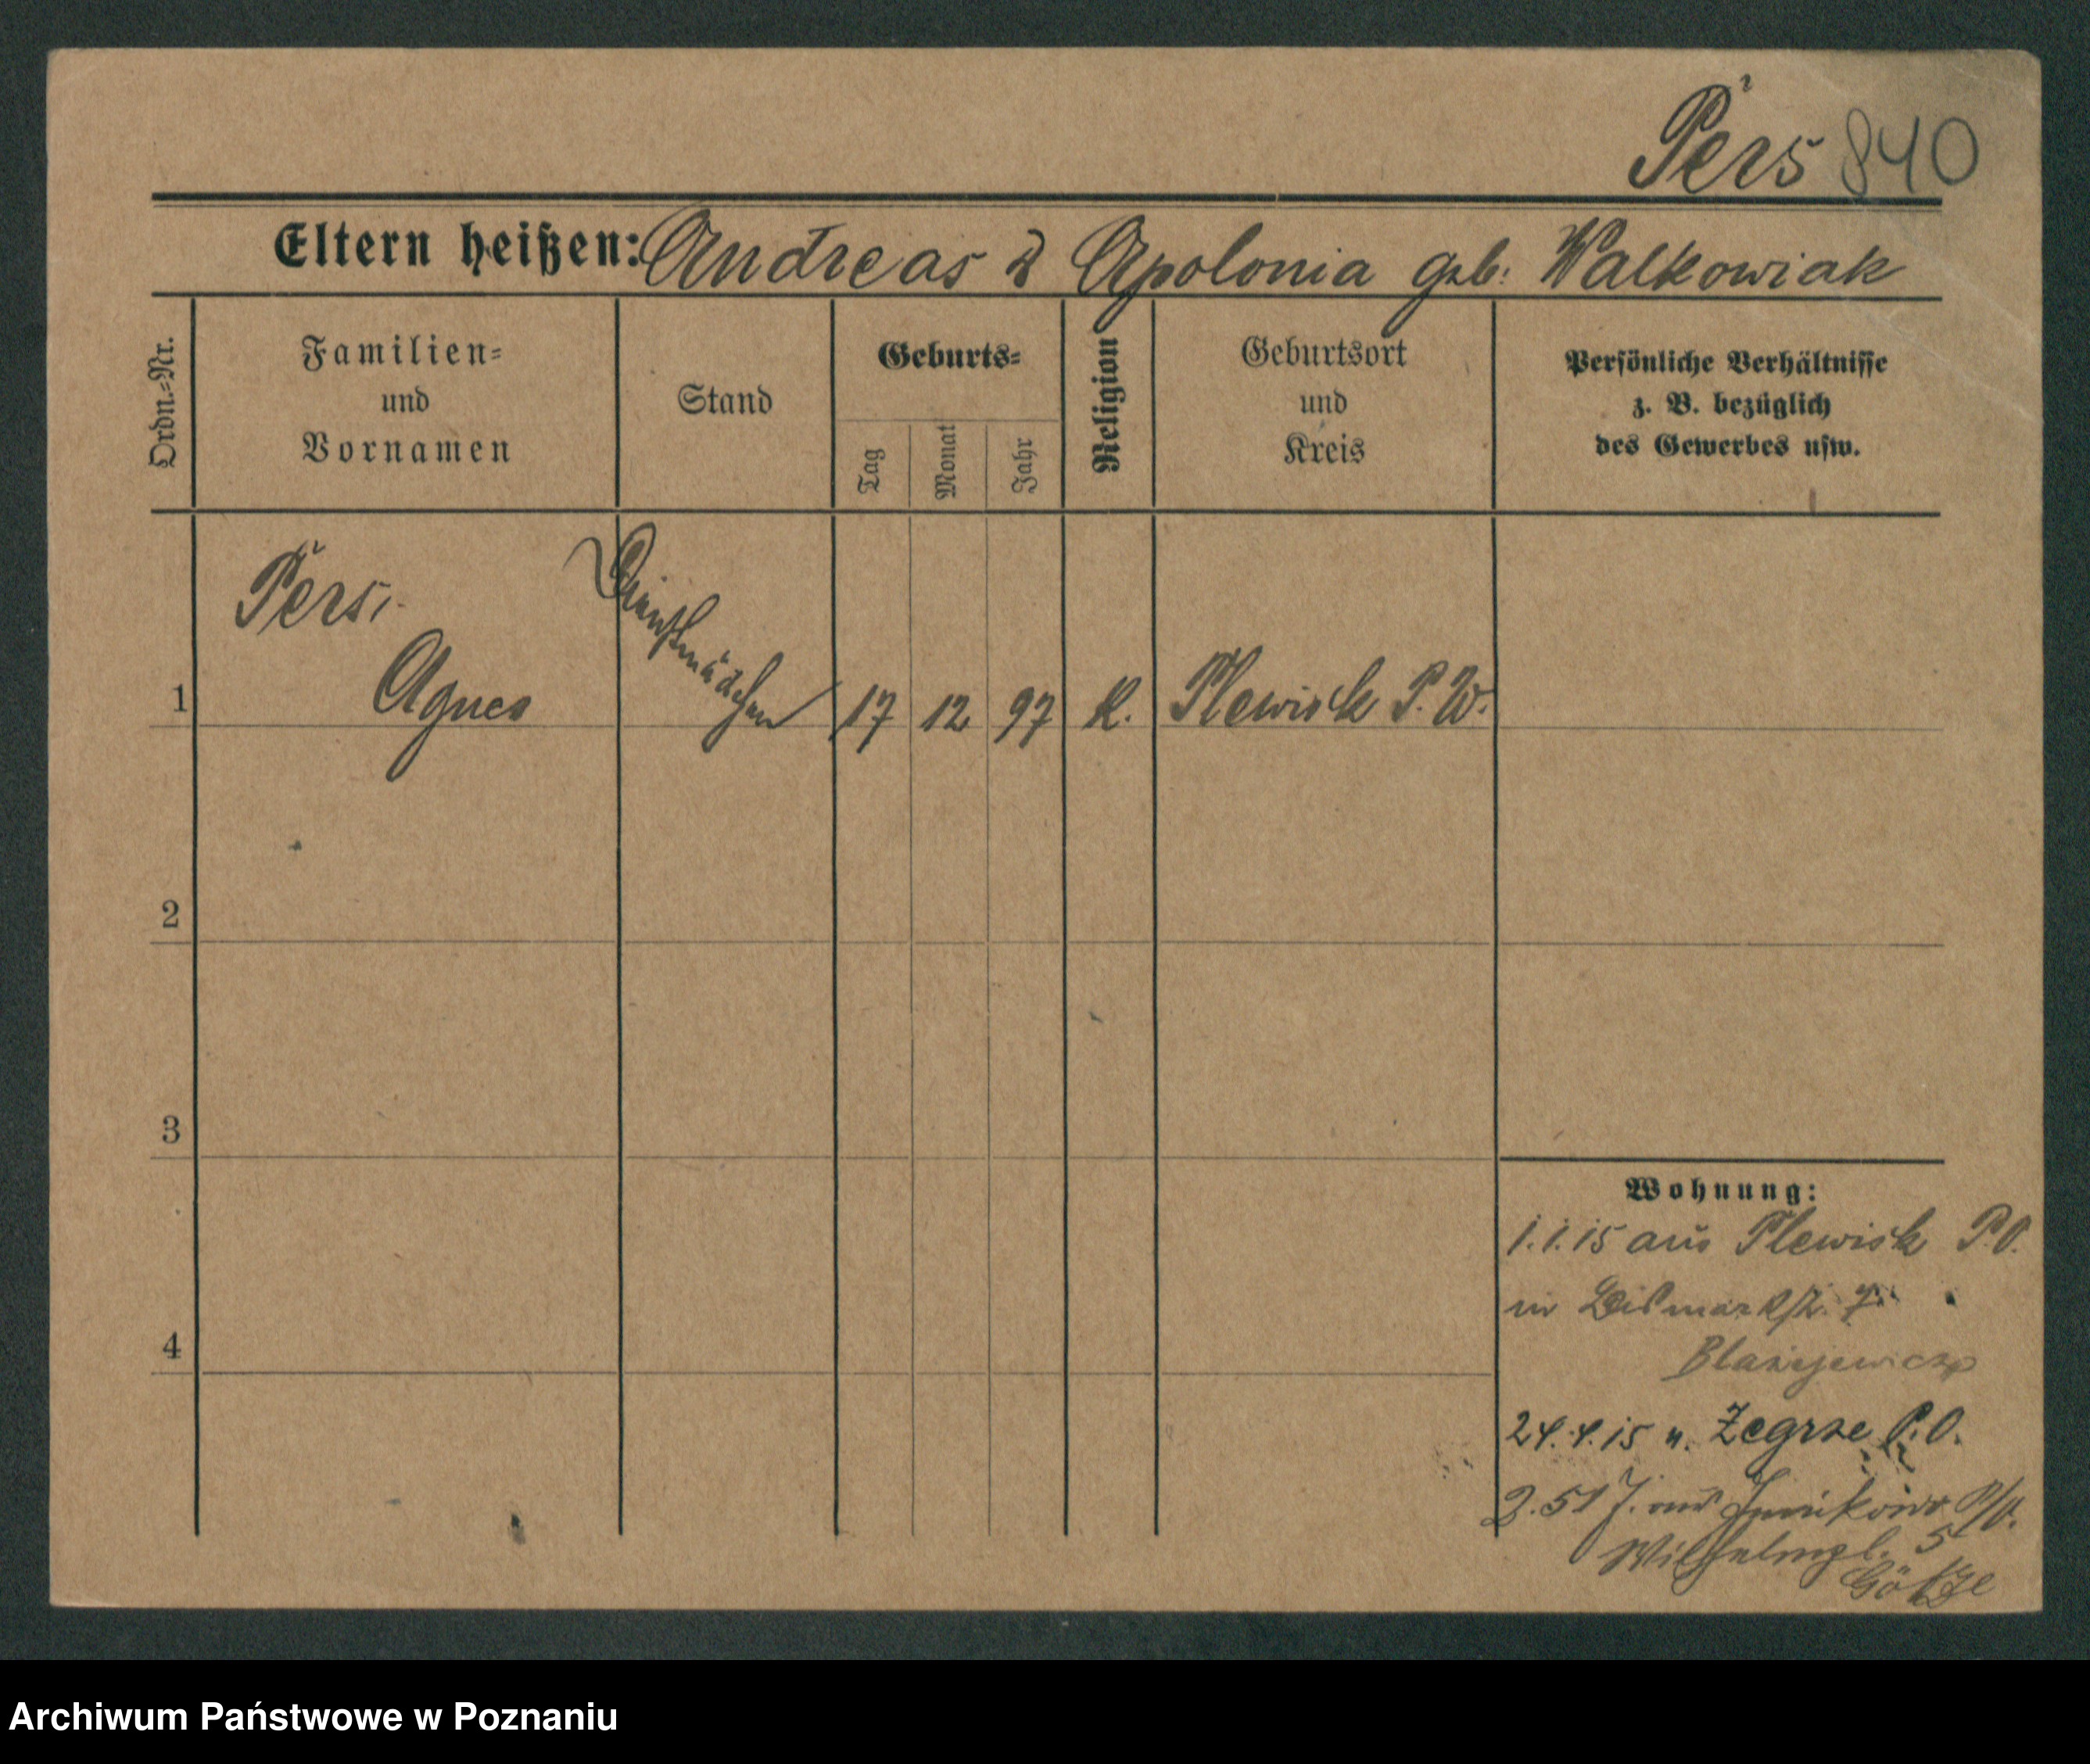 Pers 840
Eltern heißen: Andreas & Apolonia geb: Walkowiak
Ordn.=Nr.
Familien= und Vornamen
Stand
Geburts=
Tag
Monat
Jahr
Religion
Geburtsort und Kreis
Persönliche Verhältnisse
z. B. bezüglich
des Gewerbes usw.
Pers
Dienstmädchen
1 Agnes 17 12 97 K. Plewisk P. W.
2
3
4
Wohnung:
1.1.15 aus Plewisk P.O.
in Bismarckstr. 7
Blazejewicz
24.4.15 n. Zegrze P.O.
Junikowo P/O.
Wilhelmpl. 5
Götze
Archiwum Państwowe w Poznaniu